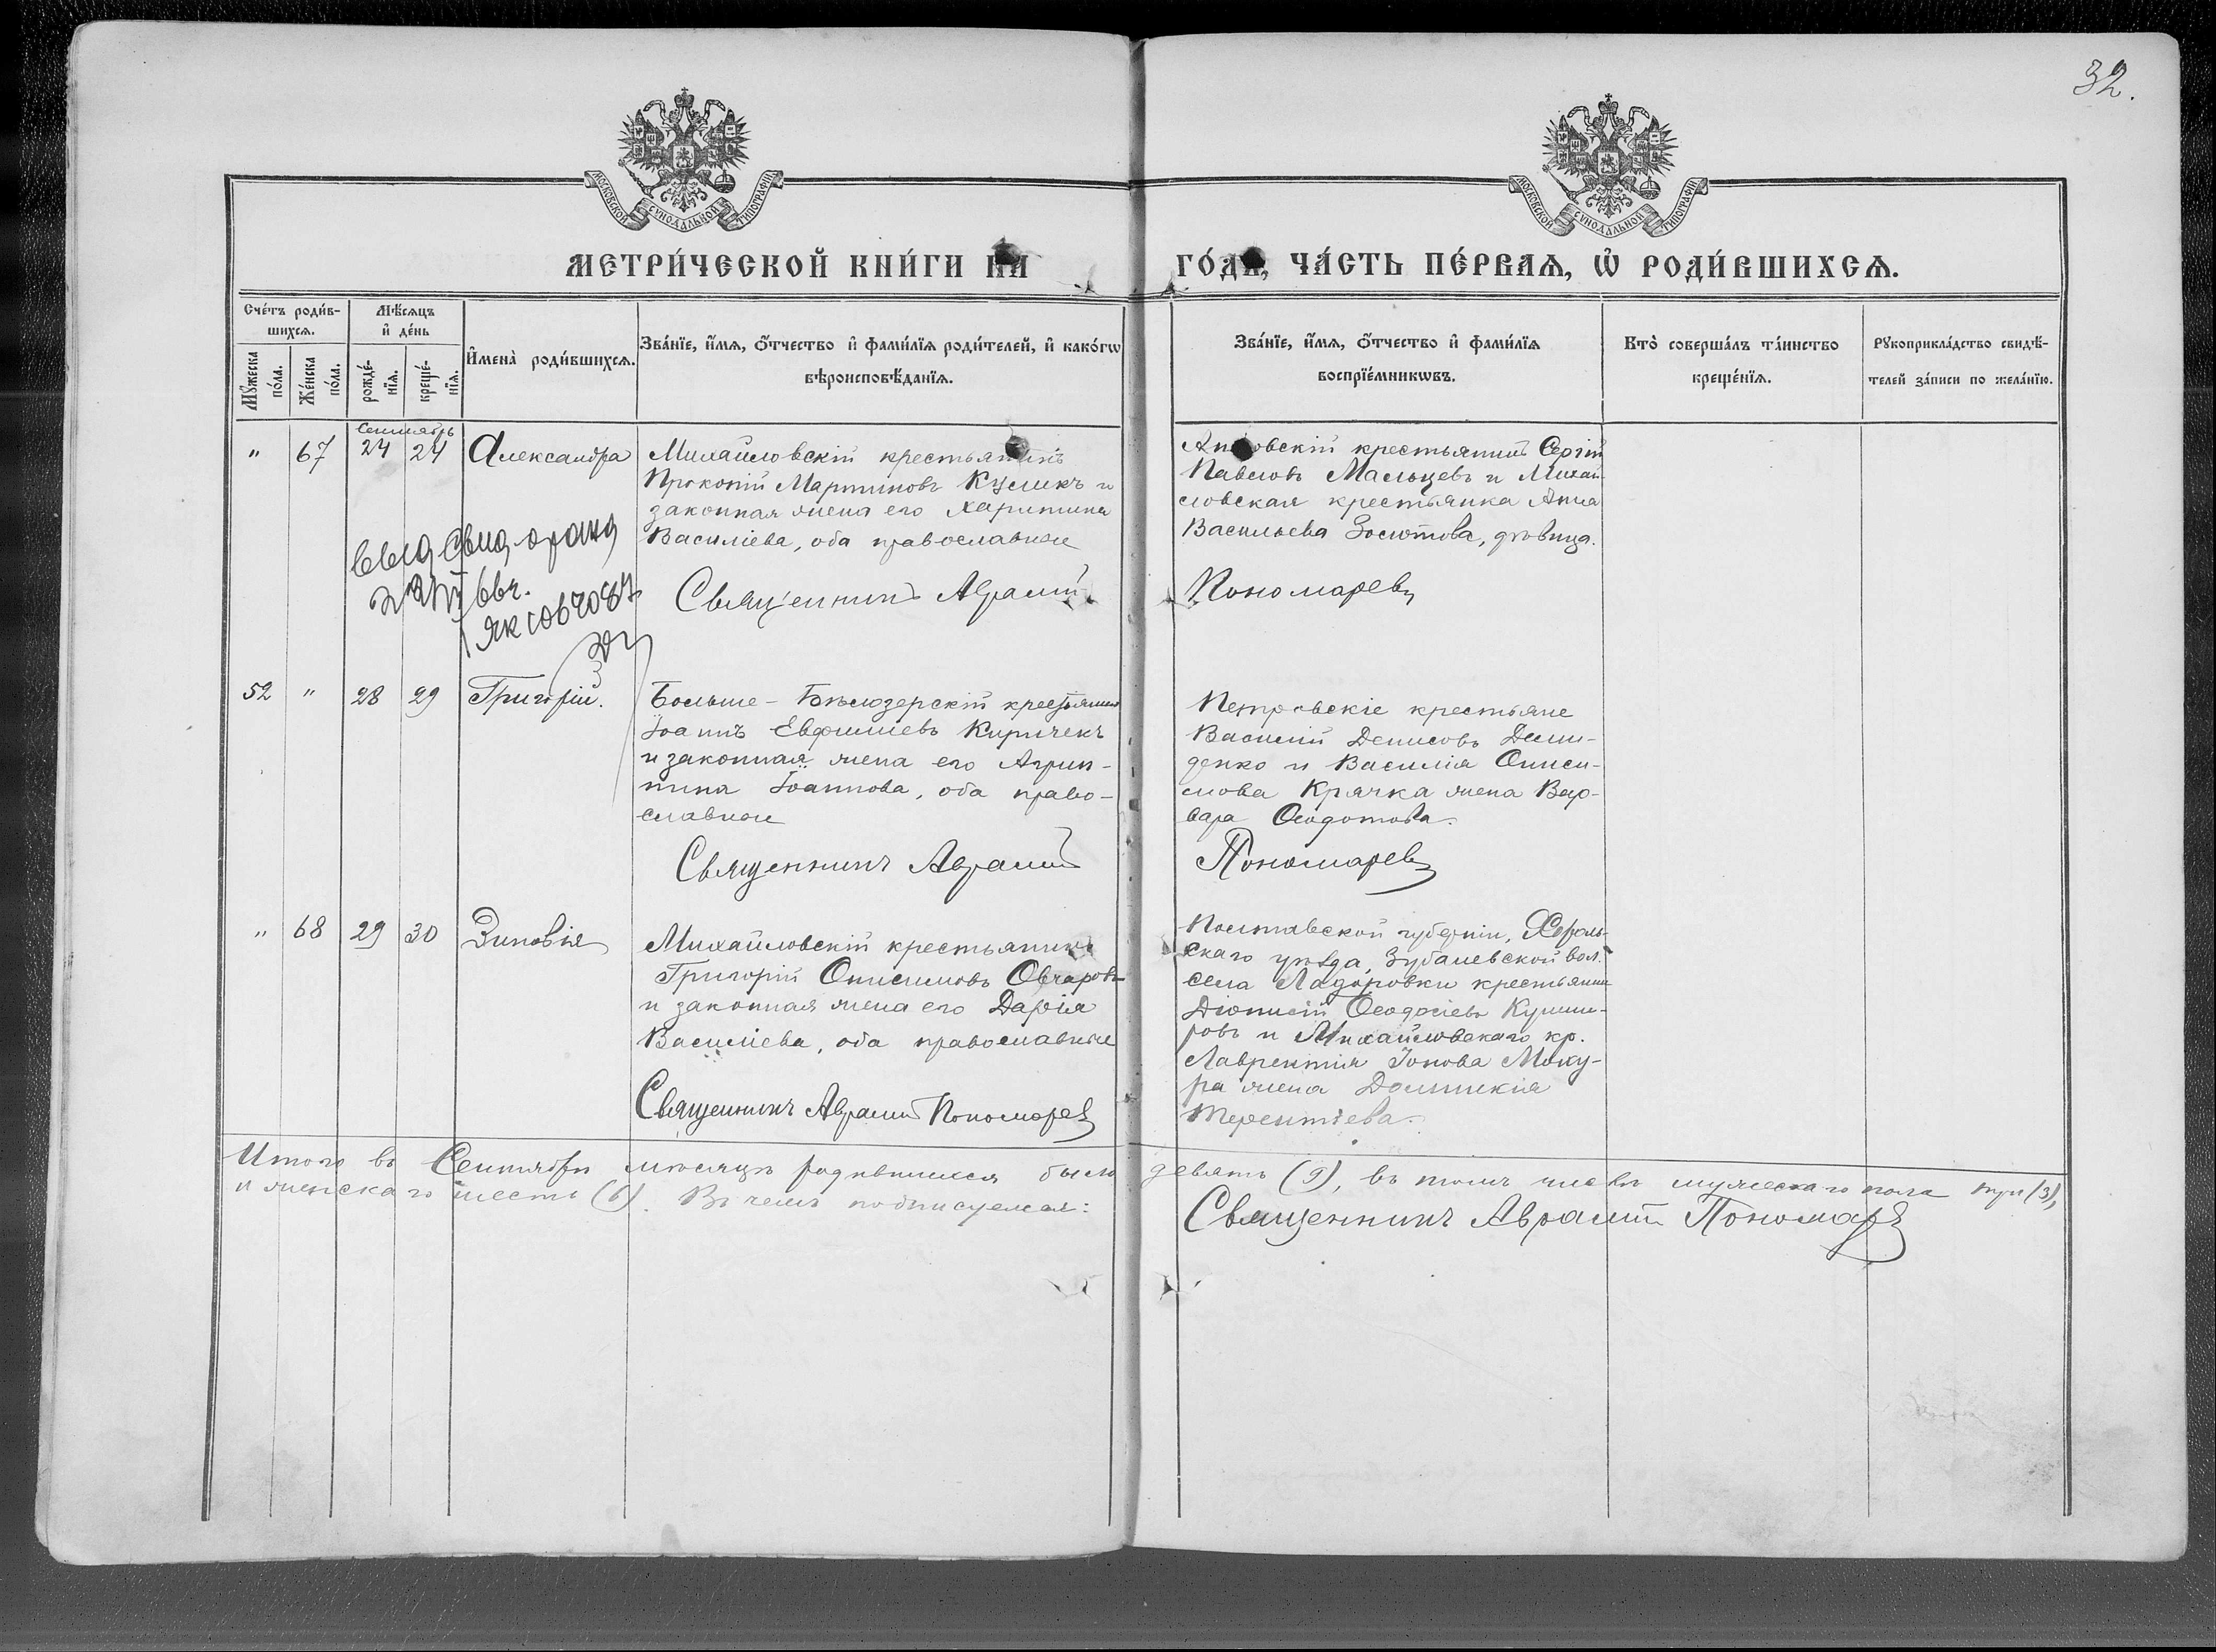 32.
МОСКОВСКОЙ СѴНОДАЛЬНОЙ ТИПОГРАФІИ
МОСКОВСКОЙ СѴНОДАЛЬНОЙ ТИПОГРАФІИ
МЕТРИ́ЧЕСКОЙ КНИ́ГИ НА
ГО́ДЪ, ЧА́СТЬ ПЕ́РВАѦ, Ѡ҆ РОДИ́ВШИХСѦ.
Сче́тъ роди́в-
шихсѧ.
Мꙋ́жеска
по́ла.
Же́нска
по́ла.
Мѣ́сѧцъ
и҆ де́нь
рожде́-
нїѧ.
креще́-
нїѧ.
И҆мена̀ роди́вшихсѧ.
Зва́нїе, и҆́мѧ, ѻ҆́тчество и҆ фами́лїѧ роди́телей, и҆ како́гѡ
вѣроисповѣ́данїѧ.
Зва́нїе, и҆́мѧ, ѻ҆́тчество и҆ фами́лїѧ
воспрїе́мникѡвъ.
Кто̀ соверша́лъ та́инство
креще́нїѧ.
Рꙋкоприкла́дство свидѣ́-
телей за́писи по жела́нїю.
Сентябрь
" 67 24 24 Александра
Михайловскій крестьянинъ
Прокопій Мартиновъ Куликъ и
законная жена его Харитина
Василіева, оба православные
Священникъ Аврамій
крестьянинъ Сергій
Павловъ Мальцевъ и Михай-
ловская крестьянка Анна
Васильева Золотова, дѣвица.
Пономаревъ
52 " 28 29 Григорій.
Больше-Бѣлозерскій крестьянинъ
Іоаннъ Евфиміевъ Киричекъ
и законная жена его Агрип-
пина Іоаннова, оба право-
славные
Священникъ Аврамій
Петровскіе крестьяне
Василій Денисовъ Деми-
денко и Василія Ониси-
мова Крячка жена Вар-
вара Ѳеодотова.
Пономаревъ
" 68 29 30 Зиновія
Михайловскій крестьянинъ
Григорій Онисимовъ Овчаровъ
и законная жена его Дарія
Василіева, оба православные
Священникъ Аврамій Пономаревъ
Полтавской губерніи, Хороль-
скаго уѣзда, вол.
села крестьянинъ
Діонисій Ѳеодосіевъ
и Михайловскаго кр.
Лаврентія Іонова
жена Домникія
Терентіева.
Итого въ Сентябрѣ мѣсяцѣ родившихся было девять (9), въ томъ числѣ мужескаго пола три (3),
и женскаго шесть (6). Въ чемъ подписуемся:
Священникъ Аврамій Пономаревъ